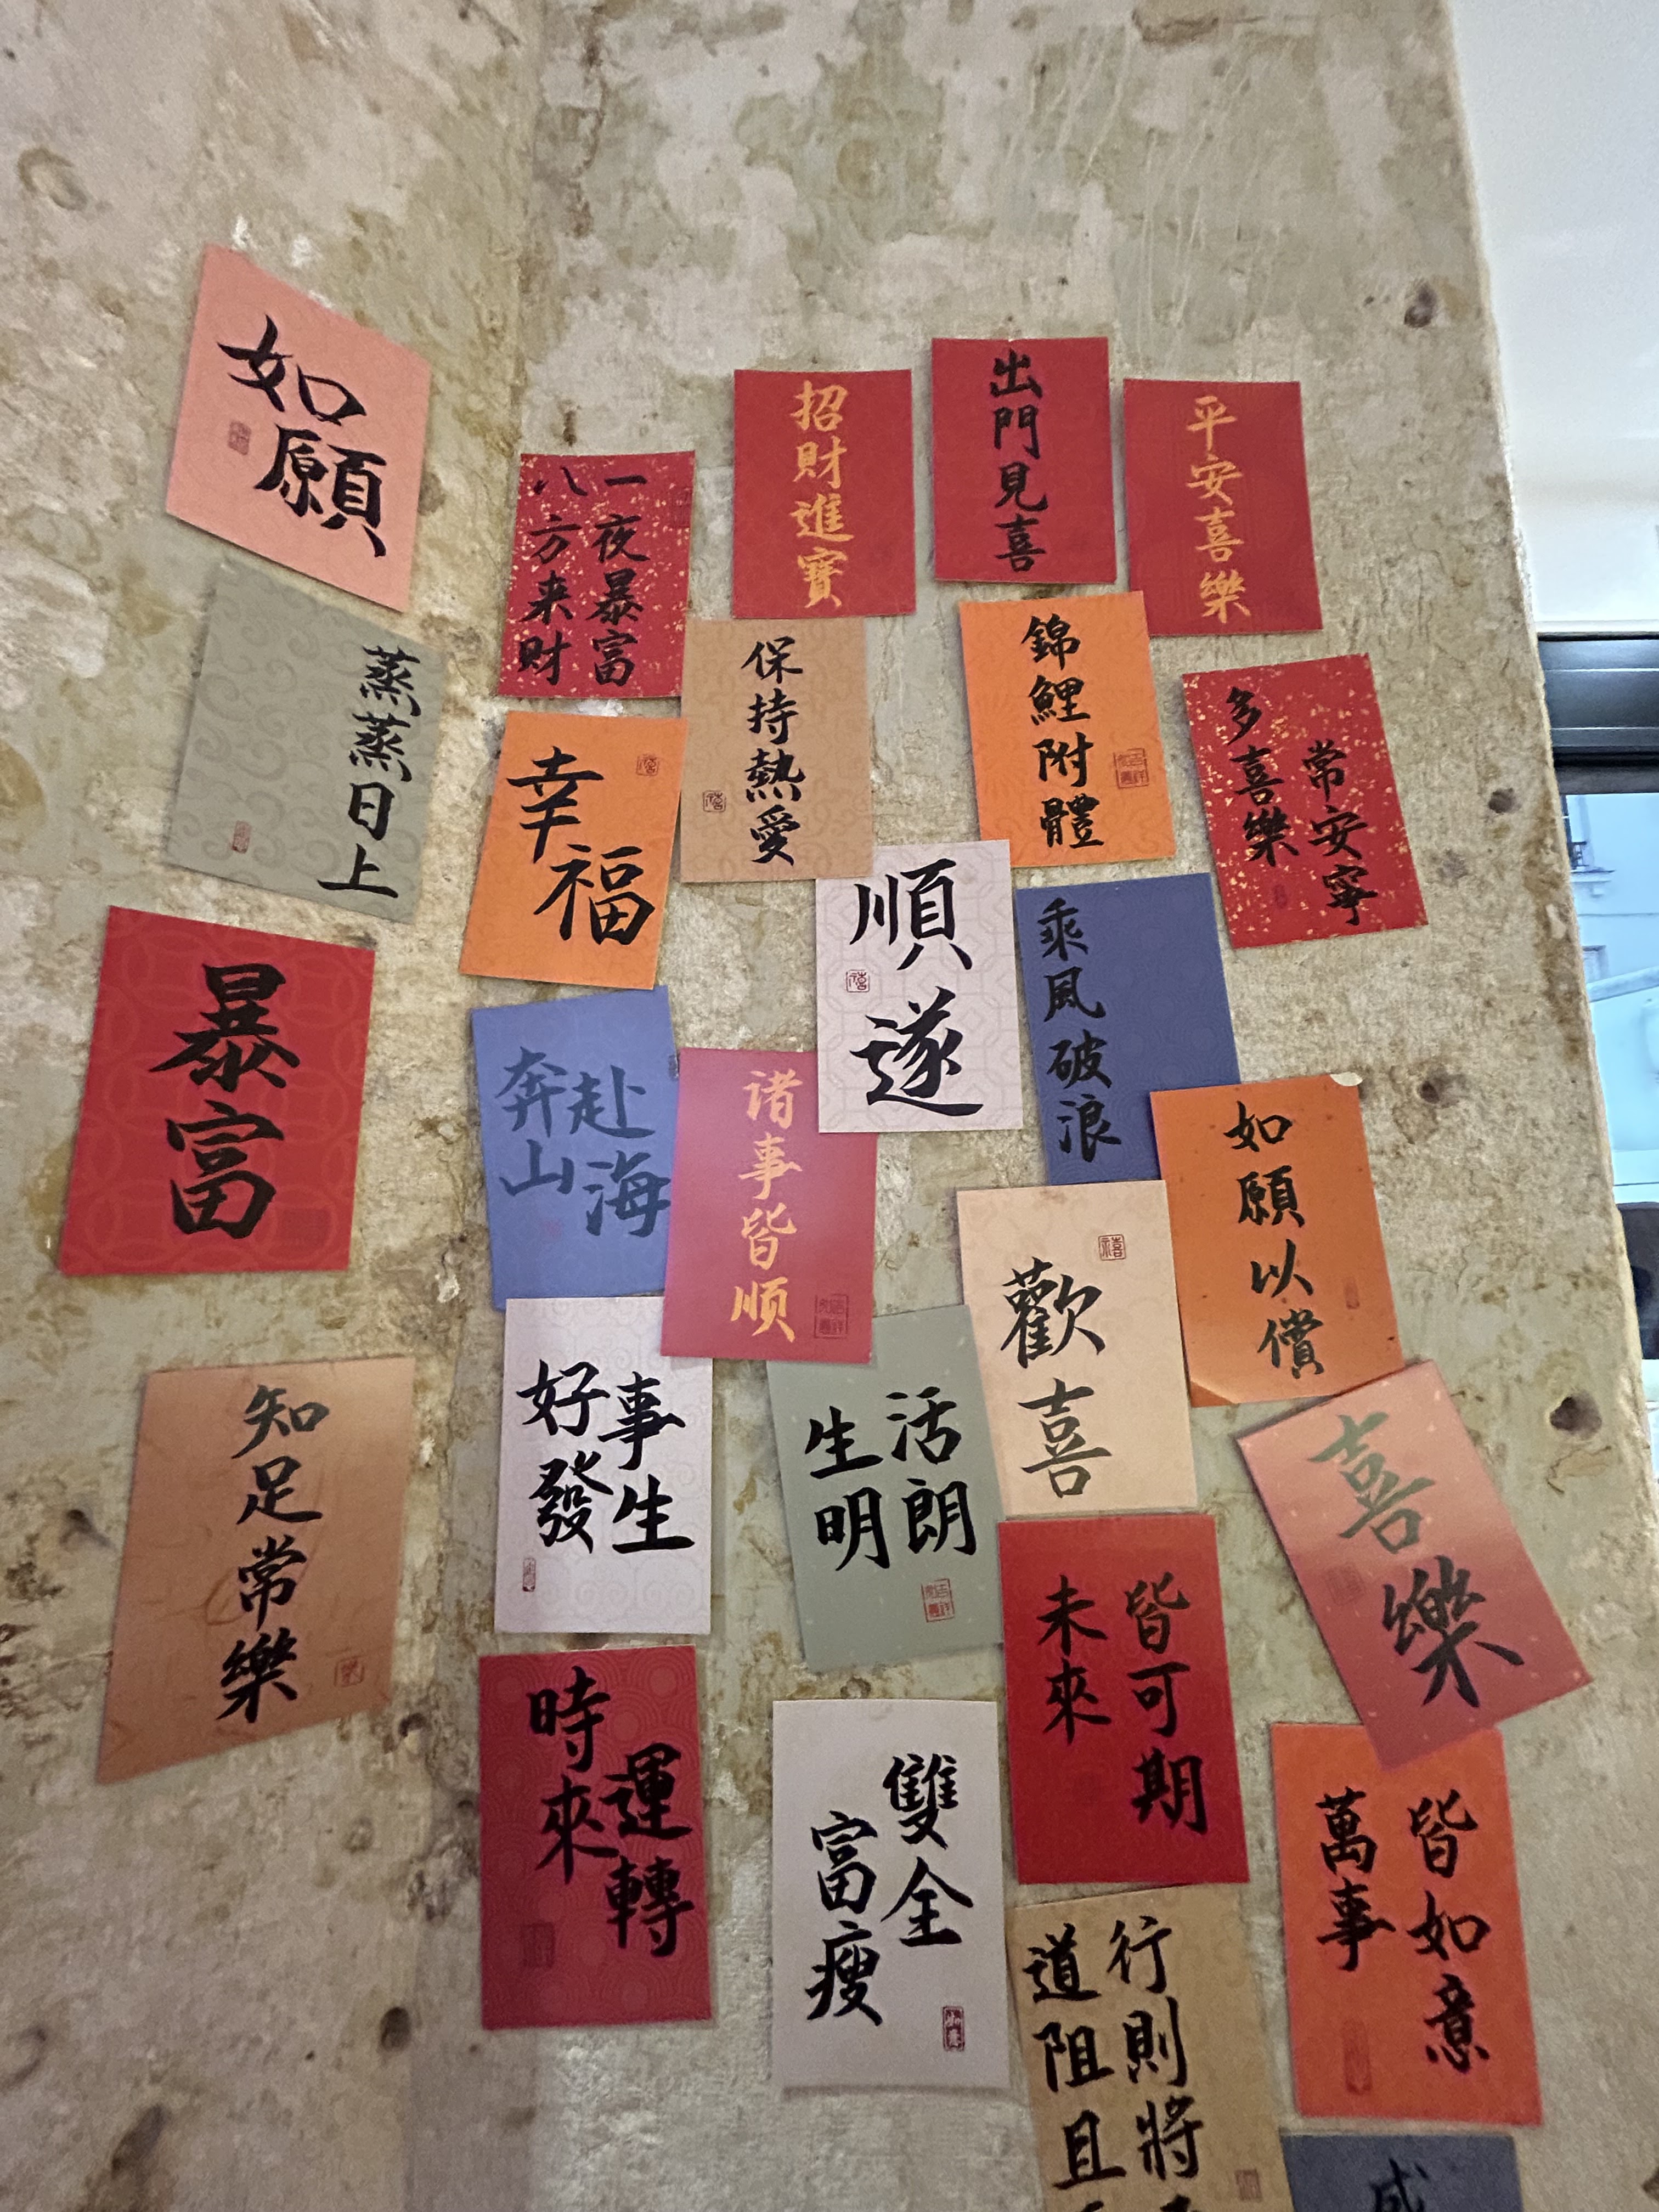 如願
蒸蒸日上
暴富
知足常樂
一夜暴富
八方来财
幸福
奔赴
山海
好事
發生
時來
運轉
招財進寶
保持熱愛
諸事皆顺
順遂
生活
明朗
富瘦
雙全
出門見喜
錦鯉附體
乘風破浪
歡喜
未來
皆可期
道阻且
行則將
平安喜樂
多喜樂
常安寧
如願以償
喜樂
萬事
皆如意